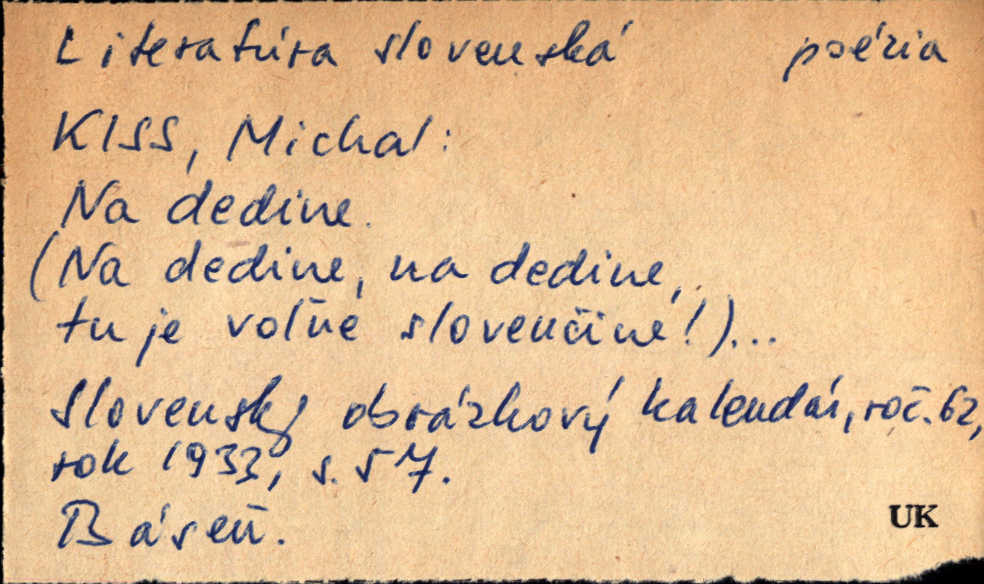 Literatúra slovenská poézia
KISS, Michal:
Na dedine.
(Na dedine, na dedine,
tu je voľné slovenčine!)...
Slovenský obrázkový kalendár, roč. 62,
rok 1933, s. 57.
Báseň.
UK